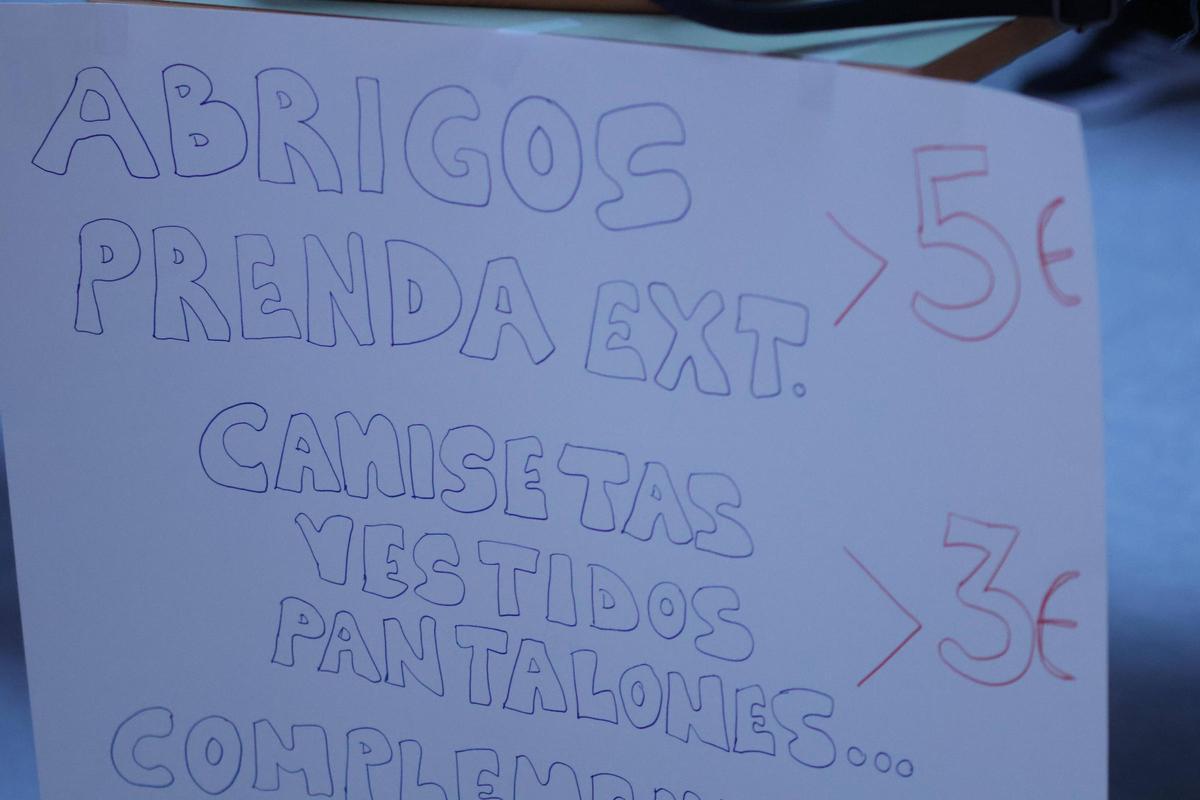 ABRIGOS
PRENDA EXT.
> 5€
CAMISETAS
VESTIDOS
PANTALONES...
> 3€